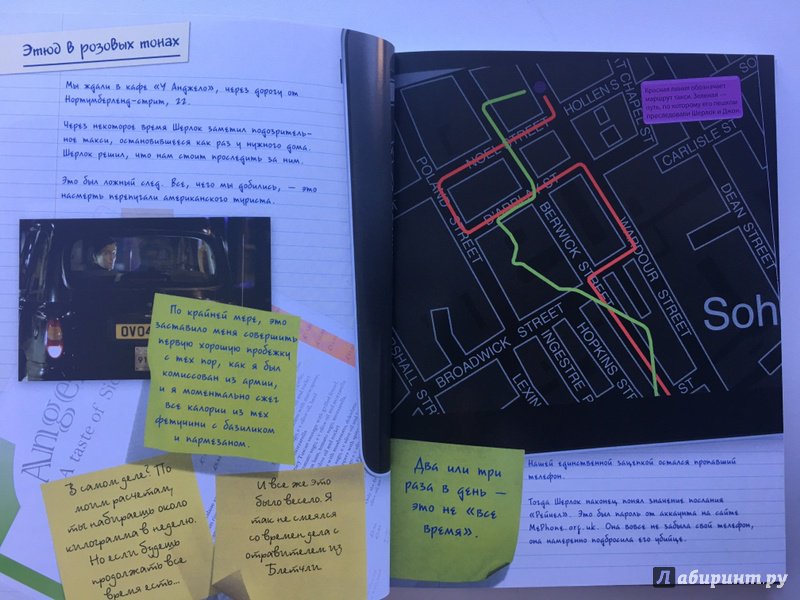 Этюд в розовых тонах
Мы ждали в кафе «У Анджело», через дорогу от
Нортумберленд-стрит, 22.
Через некоторое время Шерлок заметил подозритель-
ное такси, остановившееся как раз у нужного дома.
Шерлок решил, что нам стоит проследить за ним.
Это был ложный след. Все, чего мы добились, — это
насмерть перепугали американского туриста.
OV04
По крайней мере, это
заставило меня совершить
первую хорошую пробежку
с тех пор, как я был
комиссован из армии,
и я моментально сжег
все калории из тех
фетучини с базиликом
и пармезаном.
Ange
A taste of Sic
В самом деле? По
моим расчетам,
ты набираешь около
килограмма в неделю.
Но если будешь
продолжать все
время есть...
И все же это
было весело. Я
так не смеялся
со времен дела с
отравителем из
Блетчли
Красная линия обозначает
маршрут такси. Зеленая —
путь, по которому его пешком
преследовали Шерлок и Джон.
HOLLEN S
CHAPEL ST
SO
NOEL STREET
CARLISLE ST
POLAND STREET
D'ARBLAY ST
DEAN STREET
BERWICK STREET
WARDOUR STREET
Soh
BROADWICK STREET
HOPKINS STR
INGESTRE P
LEXIN
SHALL ST
ST
Два или три
раза в день —
это не «все
время».
Нашей единственной зацепкой остался пропавший
телефон.
Тогда Шерлок наконец понял значение послания
«Рейчел». Это был пароль от аккаунта на сайте
MePhone.org.uk. Она вовсе не забыла свой телефон,
она намеренно подбросила его убийце.
Лабиринт.ру